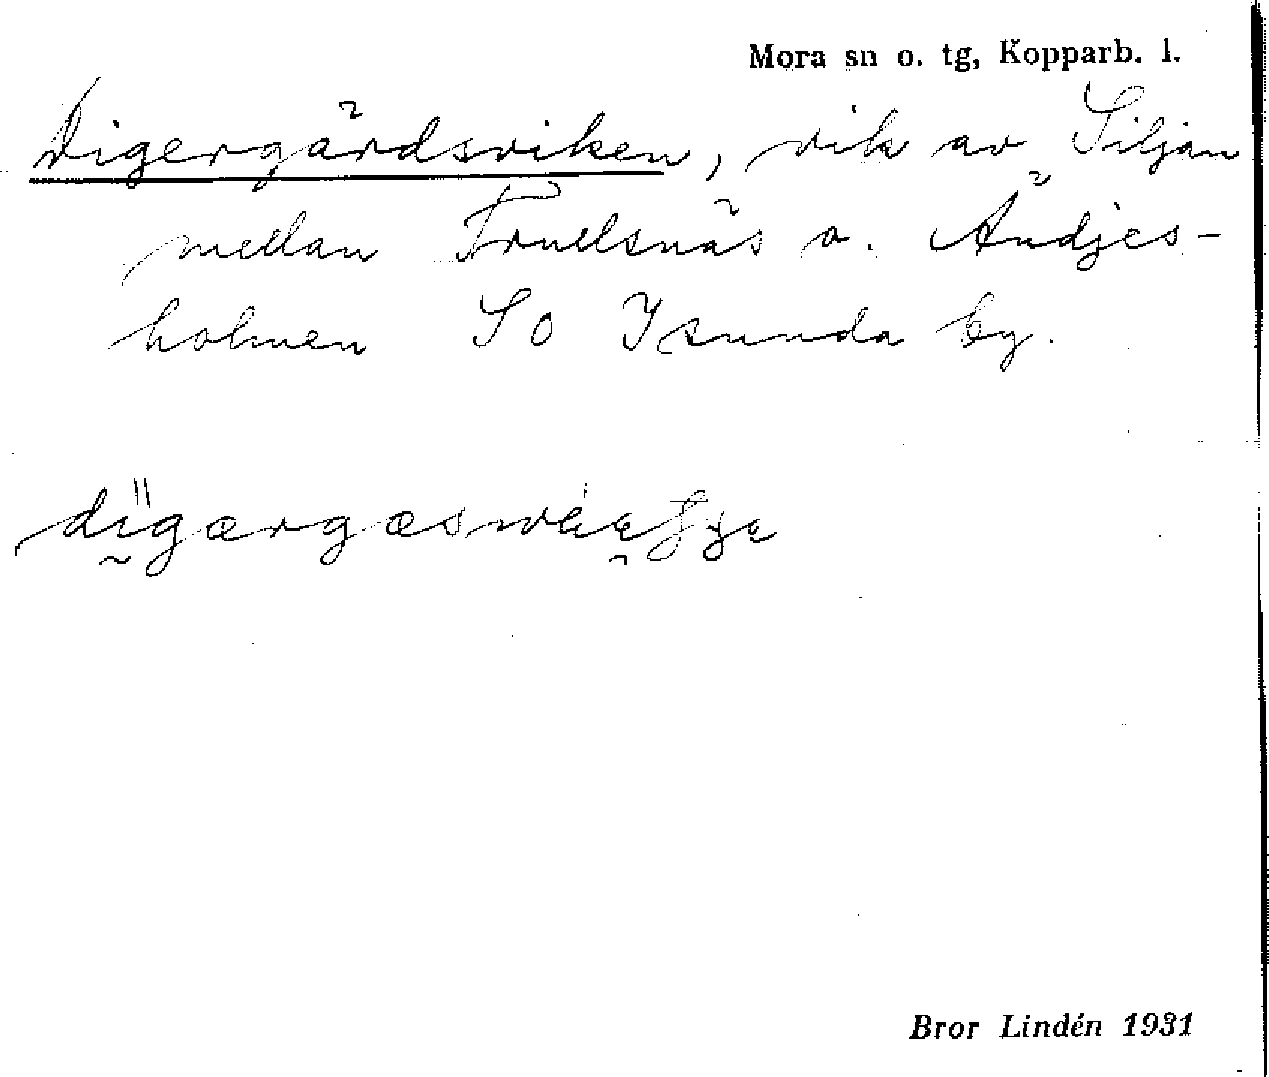 Mora sn o. tg, Kopparb. l.
Digergärdsviken, vik av Siljan
mellan Trullsnäs o. Ändjes-
holmen SO Isunda by.
Bror Lindén 1931